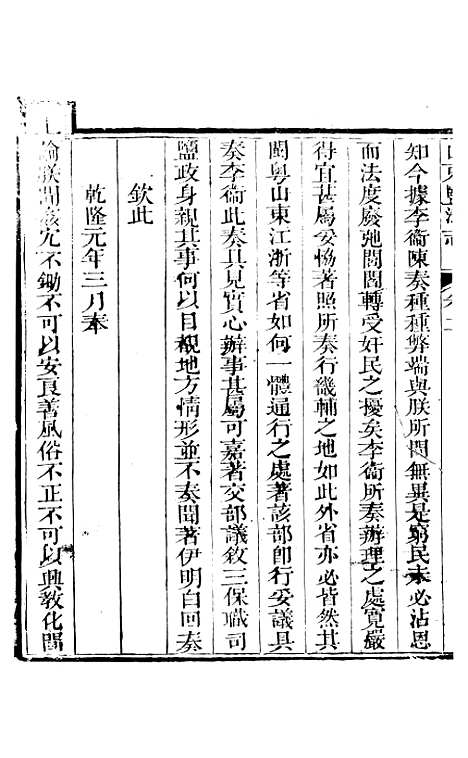 山東鹽法志
知今據李衞陳奏種種弊端與朕所聞無異是窮民未必沾恩
而法度廢弛閭閻轉受奸民之擾矣李衞所奏辦理之處寬嚴
得宜甚屬妥協著照所奏行畿輔之地如此外省亦必皆然其
閩粤山東江浙等省如何一體通行之處著該部卽行妥議具
奏李衞此奏具見實心辦事甚屬可嘉著交部議敘三保職司
鹽政身親其事何以目覩地方情形並不奏聞著伊明白回奏
欽此
乾隆元年三月奉
上
諭朕聞姦宄不鋤不可以安良善風俗不正不可以興敎化閭